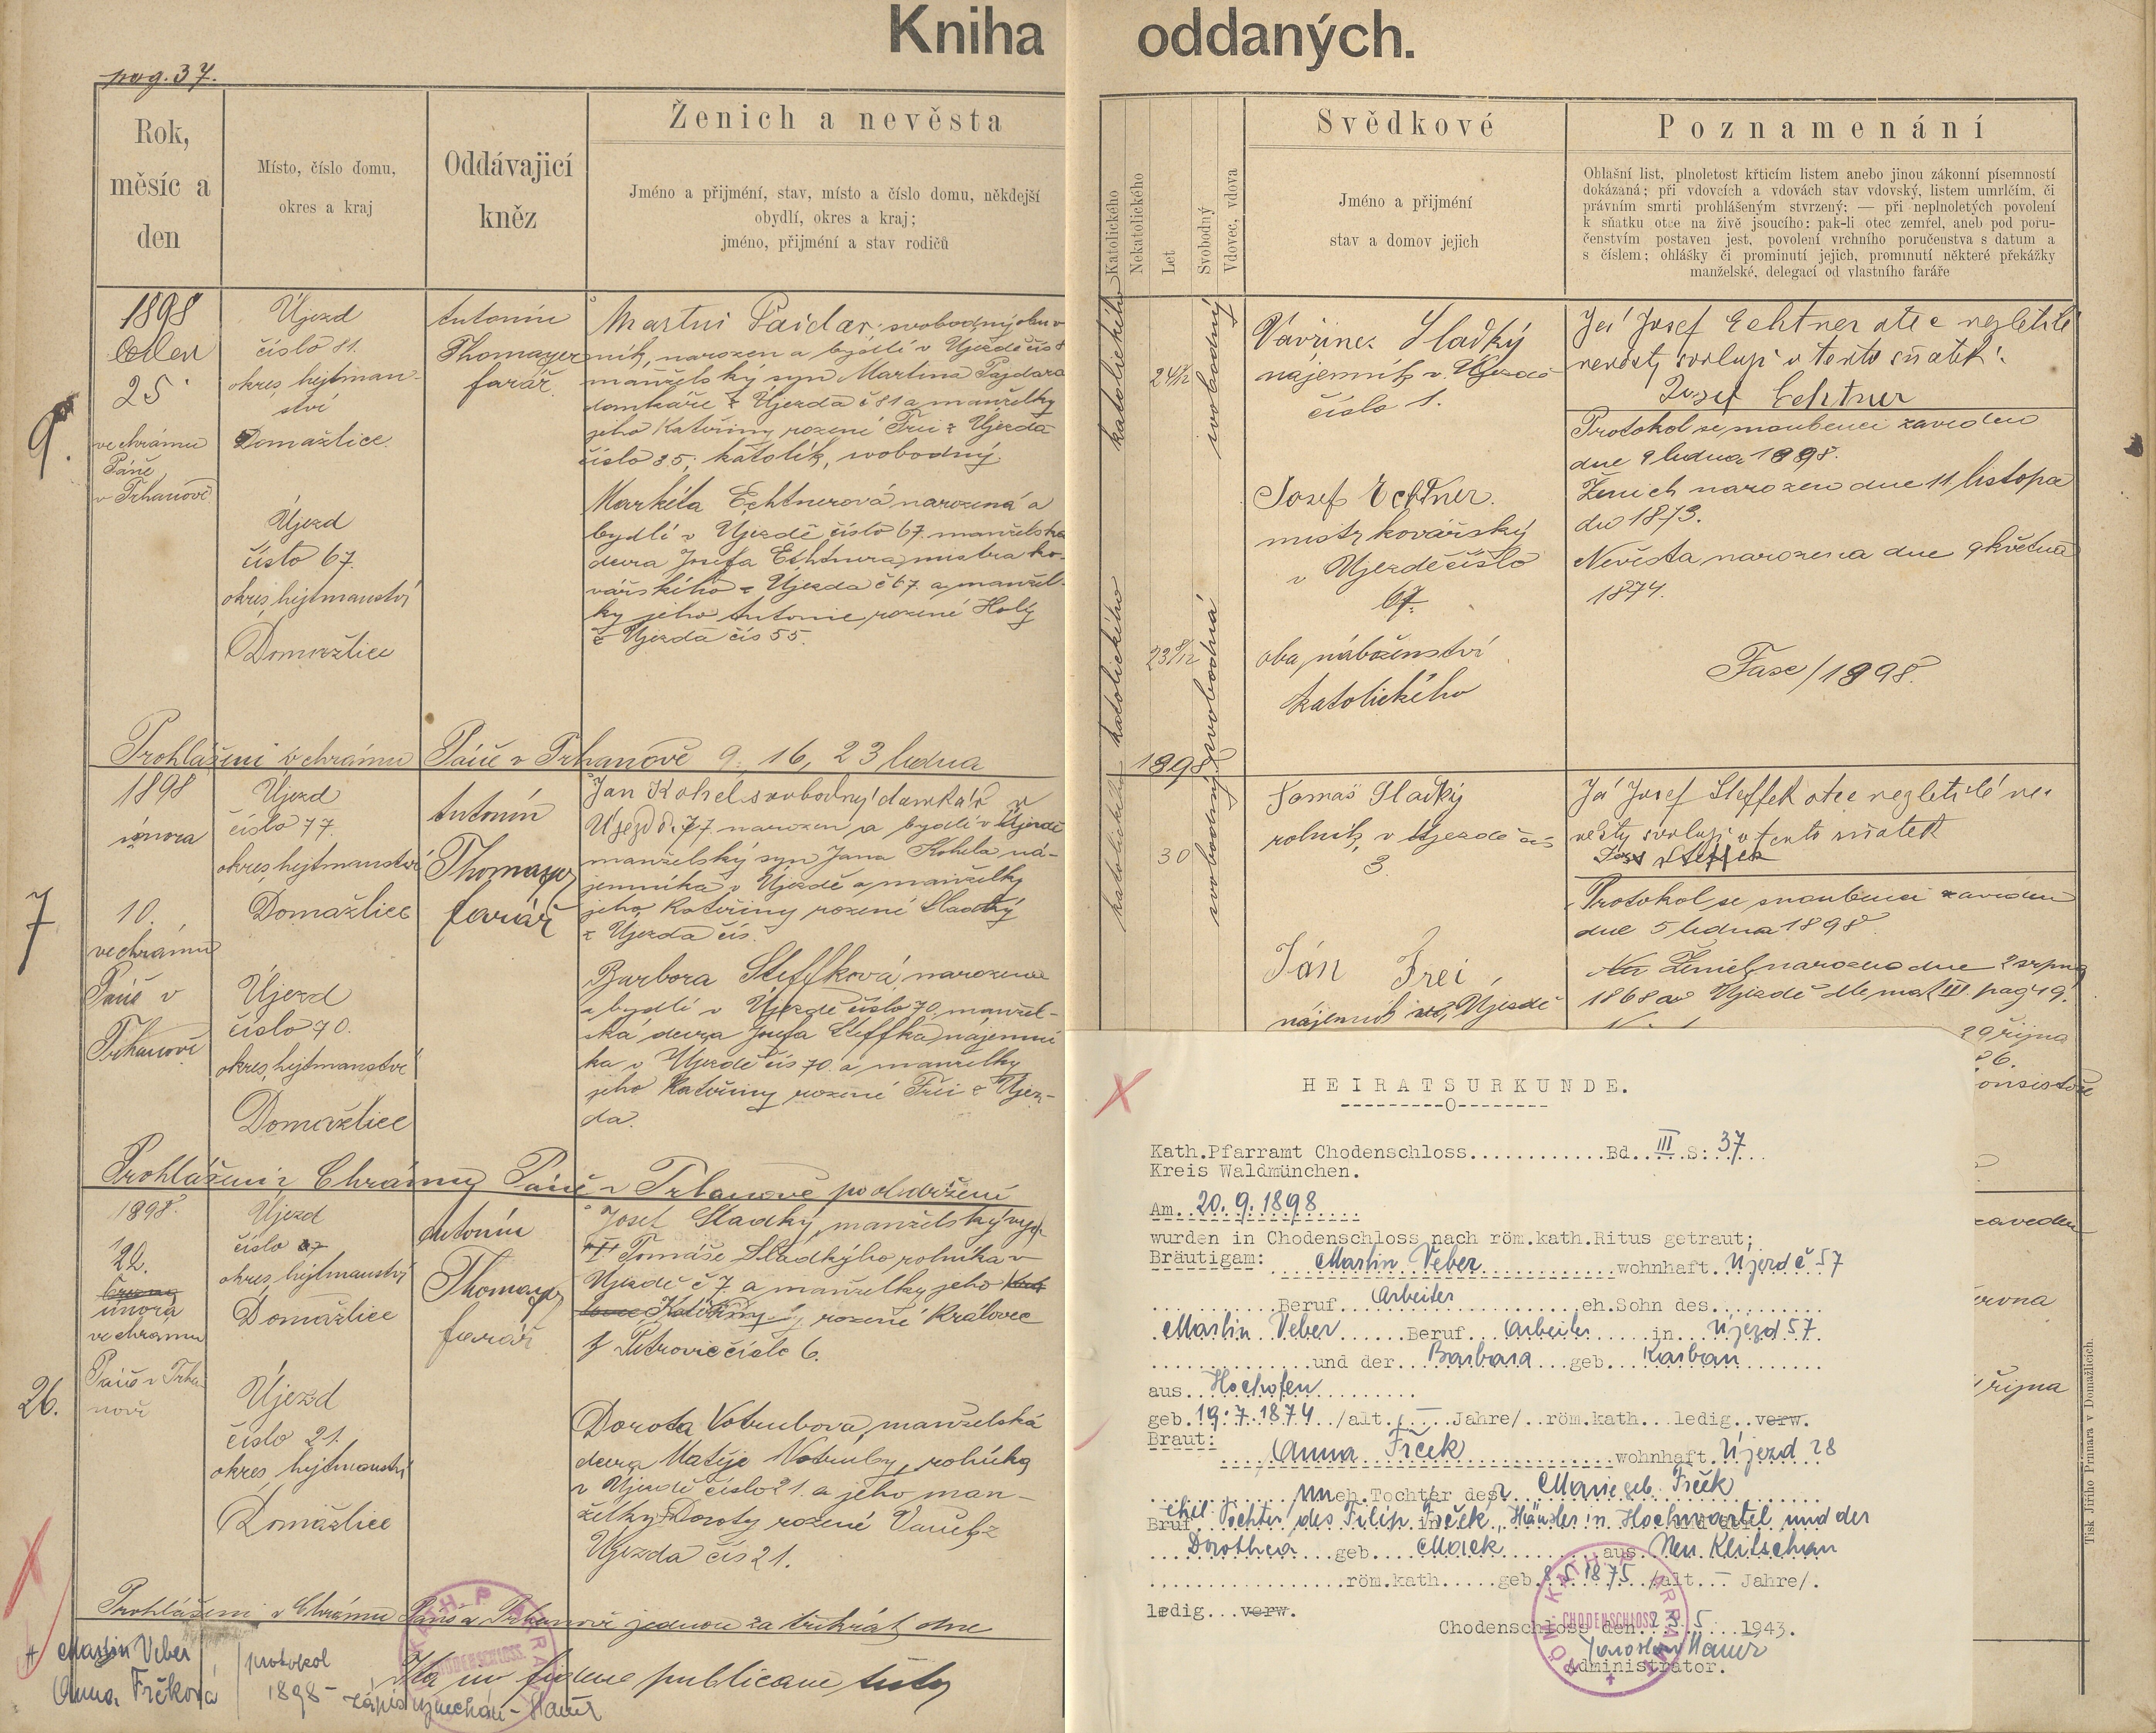 pag. 37.
Kniha oddaných.
Rok,
měsíc a
den
Místo, číslo domu,
okres a kraj
Oddávajicí
kněz
Ženich a nevěsta
Jméno a přijmění, stav, místo a číslo domu, někdejší
obydlí, okres a kraj;
jméno, přijmění a stav rodičů
Katolického
Nekatolického
Let
Svobodný
Vdovec, vdova
Svědkové
Jméno a přijmění
stav a domov jejich
Poznamenání
Ohlašní list, plnoletost křticím listem anebo jinou zákonní písemností
dokázaná; při vdovcích a vdovách stav vdovský, listem umrlčím, či
právním smrti prohlášeným stvrzený; — při neplnoletých povolení
k sňatku otce na živě jsoucího; pak-li otec zemřel, aneb pod poru-
čenstvím postaven jest, povolení vrchního poručenstva s datum a
s číslem; ohlášky či prominutí jejich, prominutí některé překážky
manželské, delegací od vlastního faráře
9.
1898
Leden
25
ve chrámu
Páně
v Trhanově
Újezd
číslo 81.
okres, hejtman-
ství
Domažlice.
Újezd
číslo 67.
okres, hejtmanství
Domažlice
Antonín
Thomayer
farář.
Martin Paidar, svobodný obuv
ník, narozen a bydlí v Újezdě čís 8
manželský syn Martina Pajdara
domkáře z Újezda č 81 a manželky
jeho Kateřiny rozené Frei z Újezda
číslo 35; katolík, svobodný.
Markéta Echtnerová narozená a
bydlí v Újezdě číslo 67. manželská
dcera Josefa Echtnera, mistra ko-
vářského z Újezda č 67 a manžel-
ky jeho Antonie, rozené Holý
z Újezda čís 55.
katolického
24 1/2
svobodný
katolického
23 8/12
svobodná
Vavřinec Sladký
nájemník v Újezdě
číslo 1.
Josef Echtner.
mistr kovářský
v Újezdě číslo
67.
oba, náboženství
katolického
Já Josef Echtner otec nezletilé
nevěsty svoluji v tento sňatek.
Josef Echtner
Protokol se snoubenci zaveden
dne 9 ledna 1898.
Ženich narozen dne 11 listopa
du 1873.
Nevěsta narozena dne 9 května
1874.
Fasc/1898.
Prohlášeni v chrámu Páně v Trhanově 9., 16, 23 ledna 1898
7
1898
února
10.
ve chrámu
Páně v
Trhanově
Újezd
číslo 77.
okres, hejtmanství
Domažlice
Újezd
číslo 70.
okres, hejtmanství
Domažlice
Antonín
Thomayer
farář
Jan Kohel svobodný domkář v
Újezd č. 77 narozen a bydlí v Újezdě
manželský syn Jana Kohela ná-
jemníka v Újezdě a manželky
jeho Kateřiny rozené Sladký
z Újezda čís.
Barbora Steffková, narozena
a bydlí v Újezdě číslo 70. manžel-
ská dcera Josefa Steffka, nájemní
ka v Újezdě čís 70. a manželky
jeho Kateřiny rozené Frei z Újez-
da.
katolického
30
svobodný
Tomáš Sladký
rolník, v Újezdě čís
3.
Ján Frei,
nájemník Újezdě
Já Josef Steffek otec nezletilé ne-
věsty svoluji v tento sňatek
Josef Steffek
Protokol se snoubenci zaveden
dne 5 ledna 1898.
Ženich narozen dne 2 srpna
1868 v Újezdě dle mat III. pag 49.
29 října
Prohlášeni v Chrámu Páně v Trhanově po obdržení
26.
1898.
22.
února
ve chrámu
Páně v Trha-
nově
Újezd
číslo 27
okres, hejtmanství
Domažlice
Újezd
číslo 21.
okres, hejtmanství
Domažlice
Antonín
Thomayer
farář
Josef Sladký, manželský
Tomáše Sladkýho rolníka v
Újezdě č 7. a manželky jeho
Kateřiny, rozené Královec
z Petrovic číslo 6.
Dorota Votrubova, manželská
dcera Matěje Votruby, rolníka
v Újezdě číslo 21. a jeho man-
želky Doroty rozené Vaněk z
Újezda čís 21.
zaveden
října
Prohlášeni v Chrámu Páně v Trhanově jednou za třikrát dne
+ Martin Veber
Anna Frčková
protokol
1898 -
zápis vynechán - Hauer
HEIRATSURKUNDE.
--------O--------
Kath.Pfarramt Chodenschloss............Bd. III S: 37
Kreis Waldmünchen.
Am. 20.9.1898
wurden in Chodenschloss nach röm.kath.Ritus getraut;
Bräutigam: Martin Veber wohnhaft Újezd č 57
Beruf Arbeiter eh.Sohn des
Martin Veber Beruf Arbeiter in Újezd 57.
und der Barbara geb. Karban
aus. Hochofen
geb. 19.7.1874 /alt. - Jahre/ röm.kath. ledig. verw.
Braut: Anna Frček wohnhaft Újezd 28
uneh.Tochter der Marie geb. Frček
Beruf ehel. Tochter des Filip Frček, Händler in Hochwartel und der
Dorothea geb. Mack aus Neu Klitschau
röm.kath. geb. 8.5.1875 /alt. - Jahre/.
ledig. verw.
Chodenschloss den 2.5. 1943.
Jaroslav Hauer
Administrator.
RÖM. KATH. PFARRAMT
CHODENSCHLOSS
Tisk Jiřího Prunara v Domažlicích.